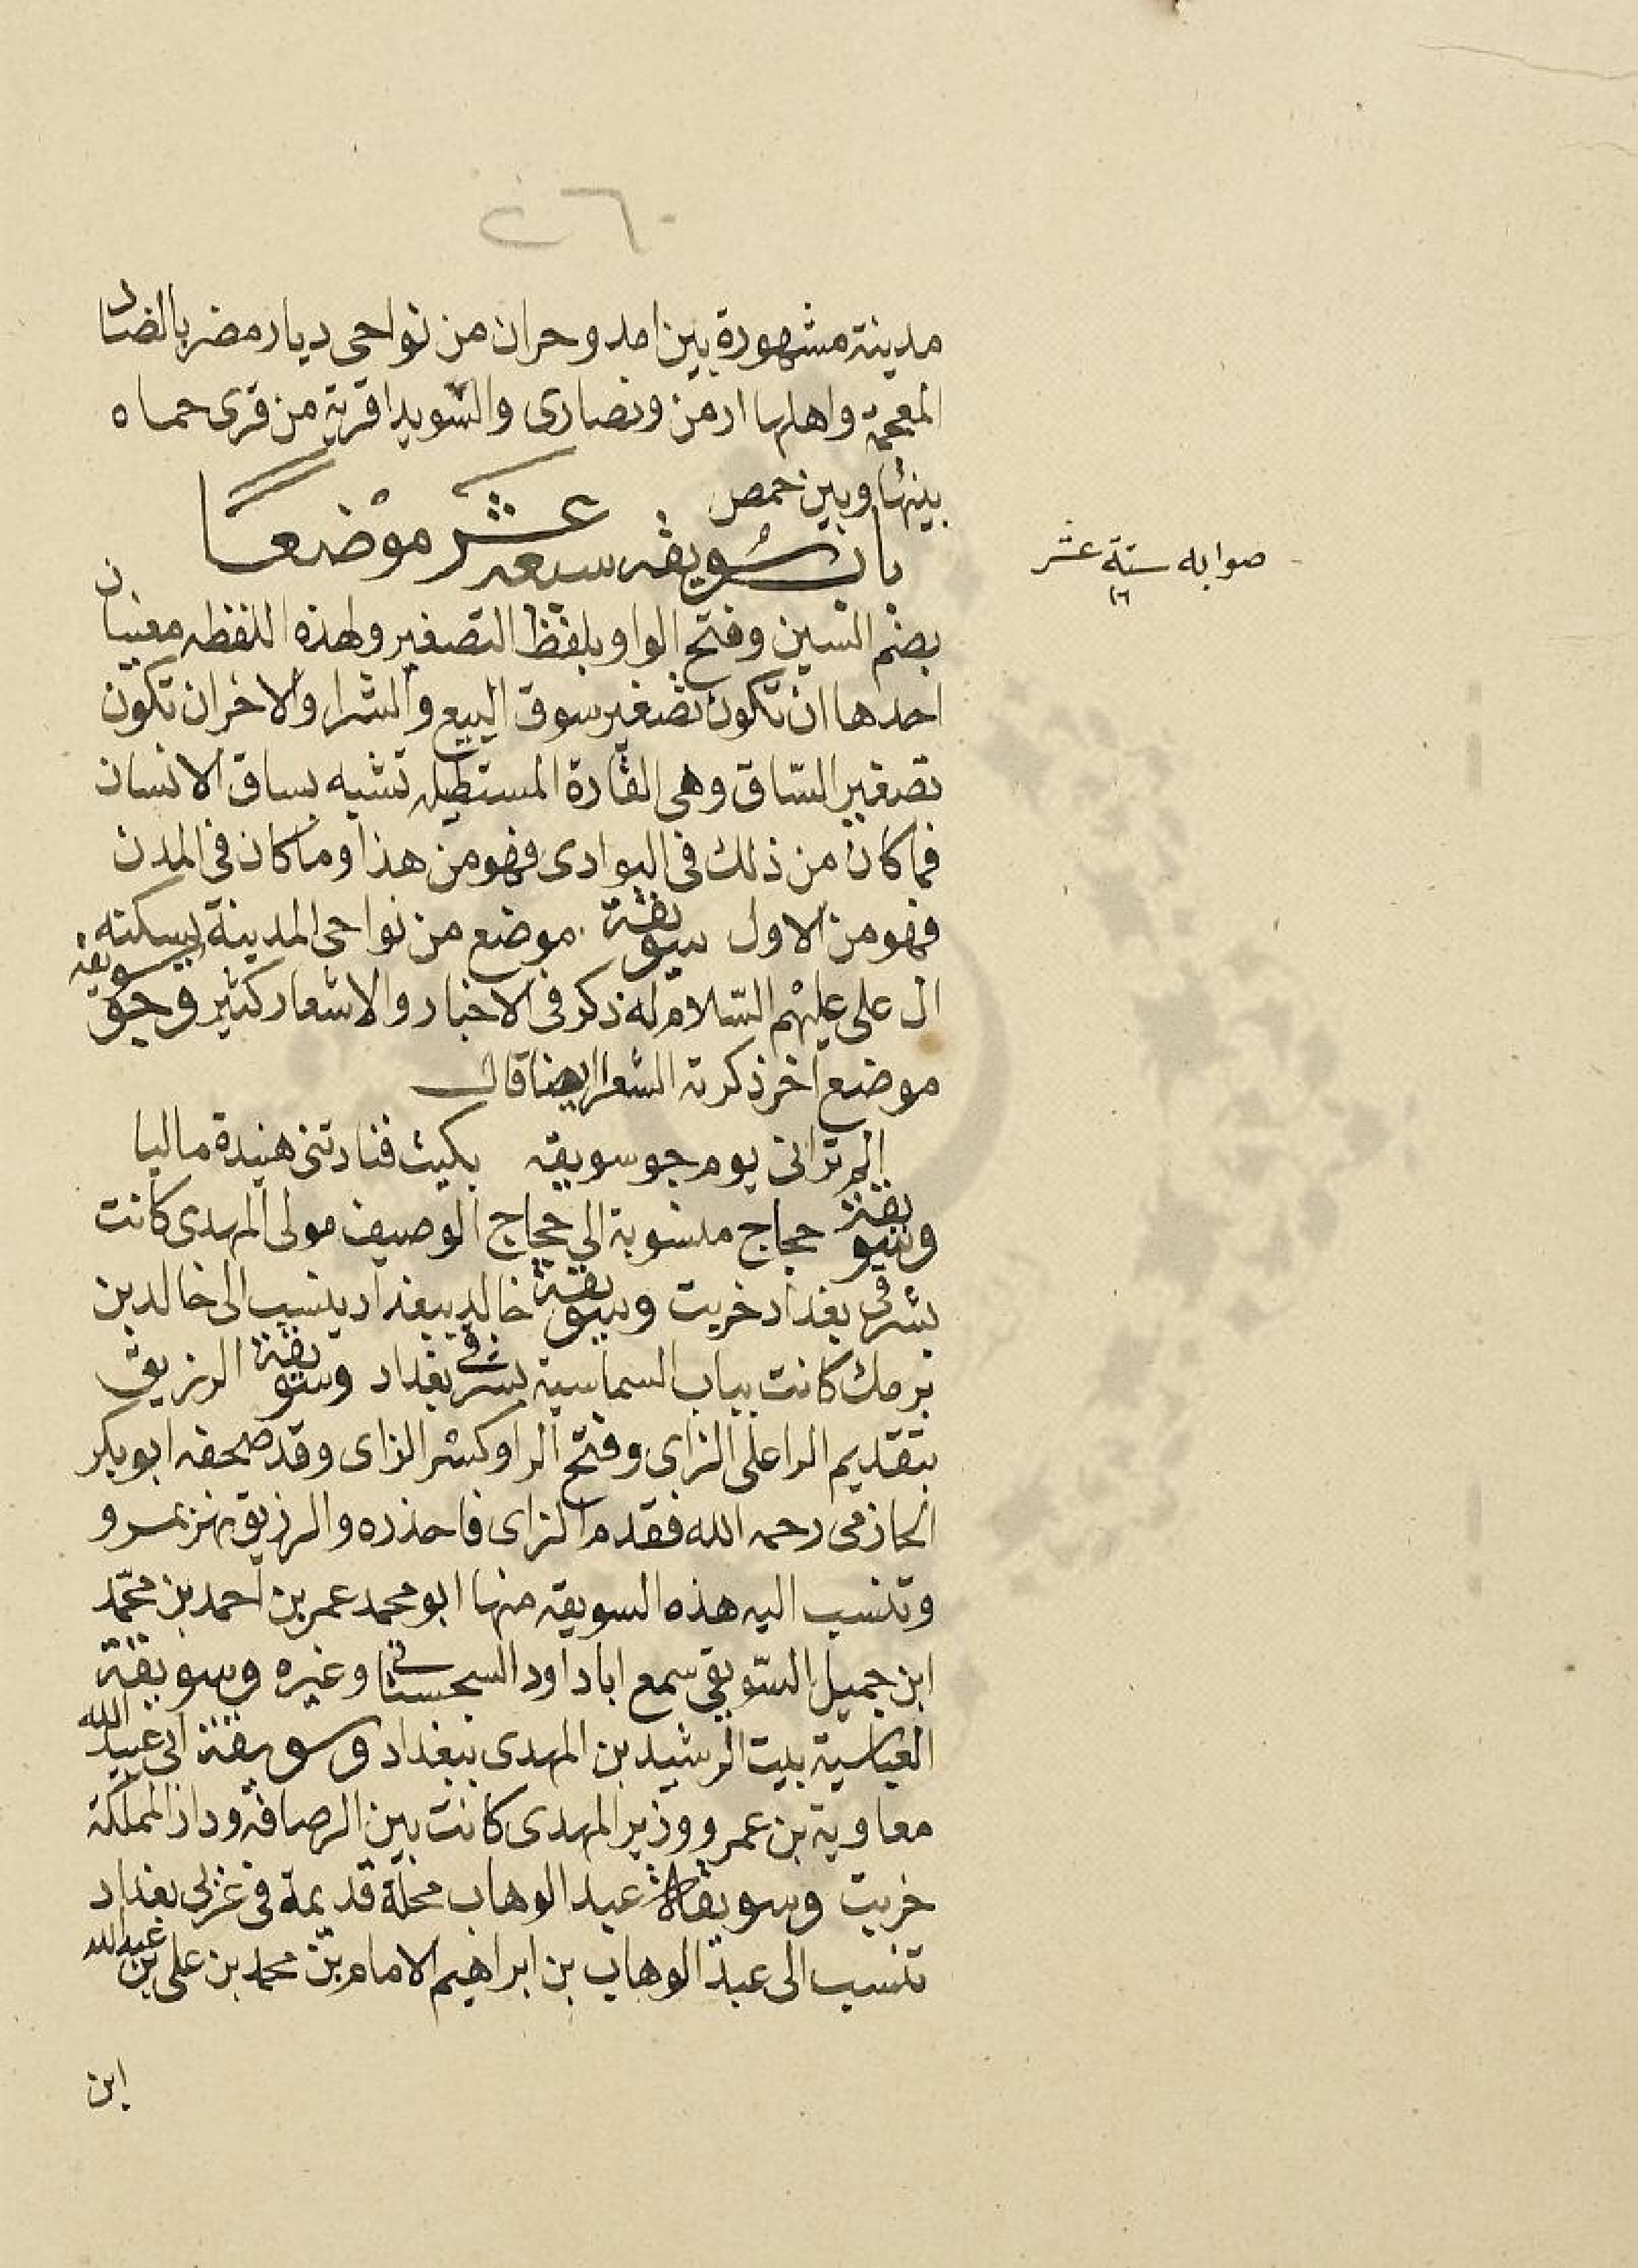 ٢٦٠
مدينة مشهورة بين امد وحران من نواحى ديار مضر بالضاد
المعجمة واهلها ارمن ونصارى والسويدا قرية من قرى حماه
بينها وبين حمص
باب سُويقه سبعه عشر موْضعًا
صوابه ستة عشر
١٦
بضم السين وفتح الواو بلفظ التصغير ولهذه اللفظه معنيان
احدها ان تكون تصغير سوق البيع والشرا والاخر ان تكون
تصغير السّاق وهى القارة المستطيله تشبه بساق الانسان
فما كان من ذلك فى البوادى فهو من هذا وما كان فى المدن
فهو من الاول سويقة موضع من نواحى المدينة يسكنه
ال على عليهْم السّلام له ذكر فى الاخبار والاشعار كثير وجو سويقه
موضع اخر ذكرته الشعرا ايضا قال
الم ترانى يوم جو سويقه بكيت فنادتنى هنيدة ماليا
وسويقة حجاج منسوبة الى حجاج الوصيف مولى المهدى كانت
بشرقى بغداد خربت وسويقة خالد ببغداد ينسب الى خالد بن
برمك كانت بباب السماسية بشرقى بغداد وسويقة الرزيق
بتقديم الرا على الزاى وفتح الرا وكسر الزاى وقد صحفه ابو بكر
الحازمى رحمه الله فقدم الزاى فاحذره والرزيق نهر بمرو
وتنسب اليه هذه السويقه منها ابو محمد عمر بن احمد بن محمّد
ابن جميل السّويقى سمع ابا داود السجستانى وغيره وسويقة
العباسية ببيت الرشيد بن المهدى ببغداد وسويقة ابى عبيد الله
معاوية بن عمرو وزير المهدى كانت بين الرصافة ودار المملكة
خربت وسويقة عبد الوهاب محلة قديمة فى غربى بغداد
تنسب الى عبد الوهاب بن ابراهيم الامام بن محمد بن على بن عبد الله
ابن